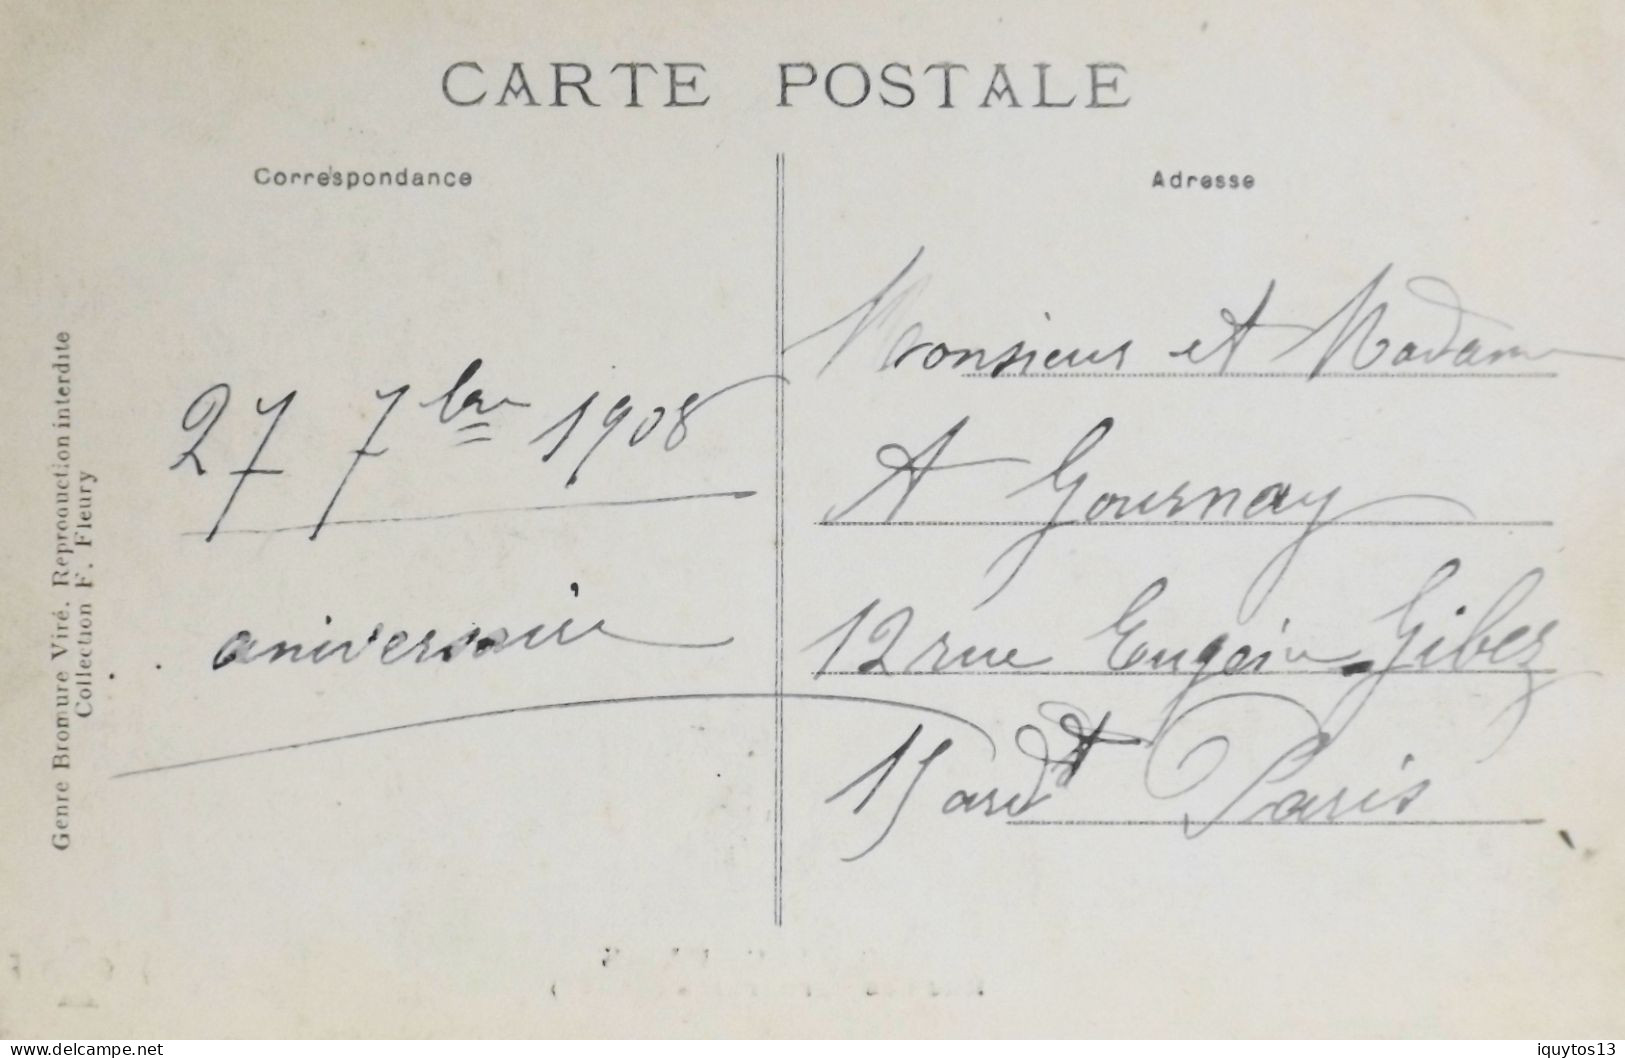 CARTE POSTALE
Correspondance
Adresse
27 7bre 1908
aniversaire
Monsieur et Madame
A Gournay
12 rue Eugéin Gibez
15 ardt Paris
Genre Bromure Viré. Reproduction interdite
Collection F. Fleury
www.delcampe.net
iquytos13